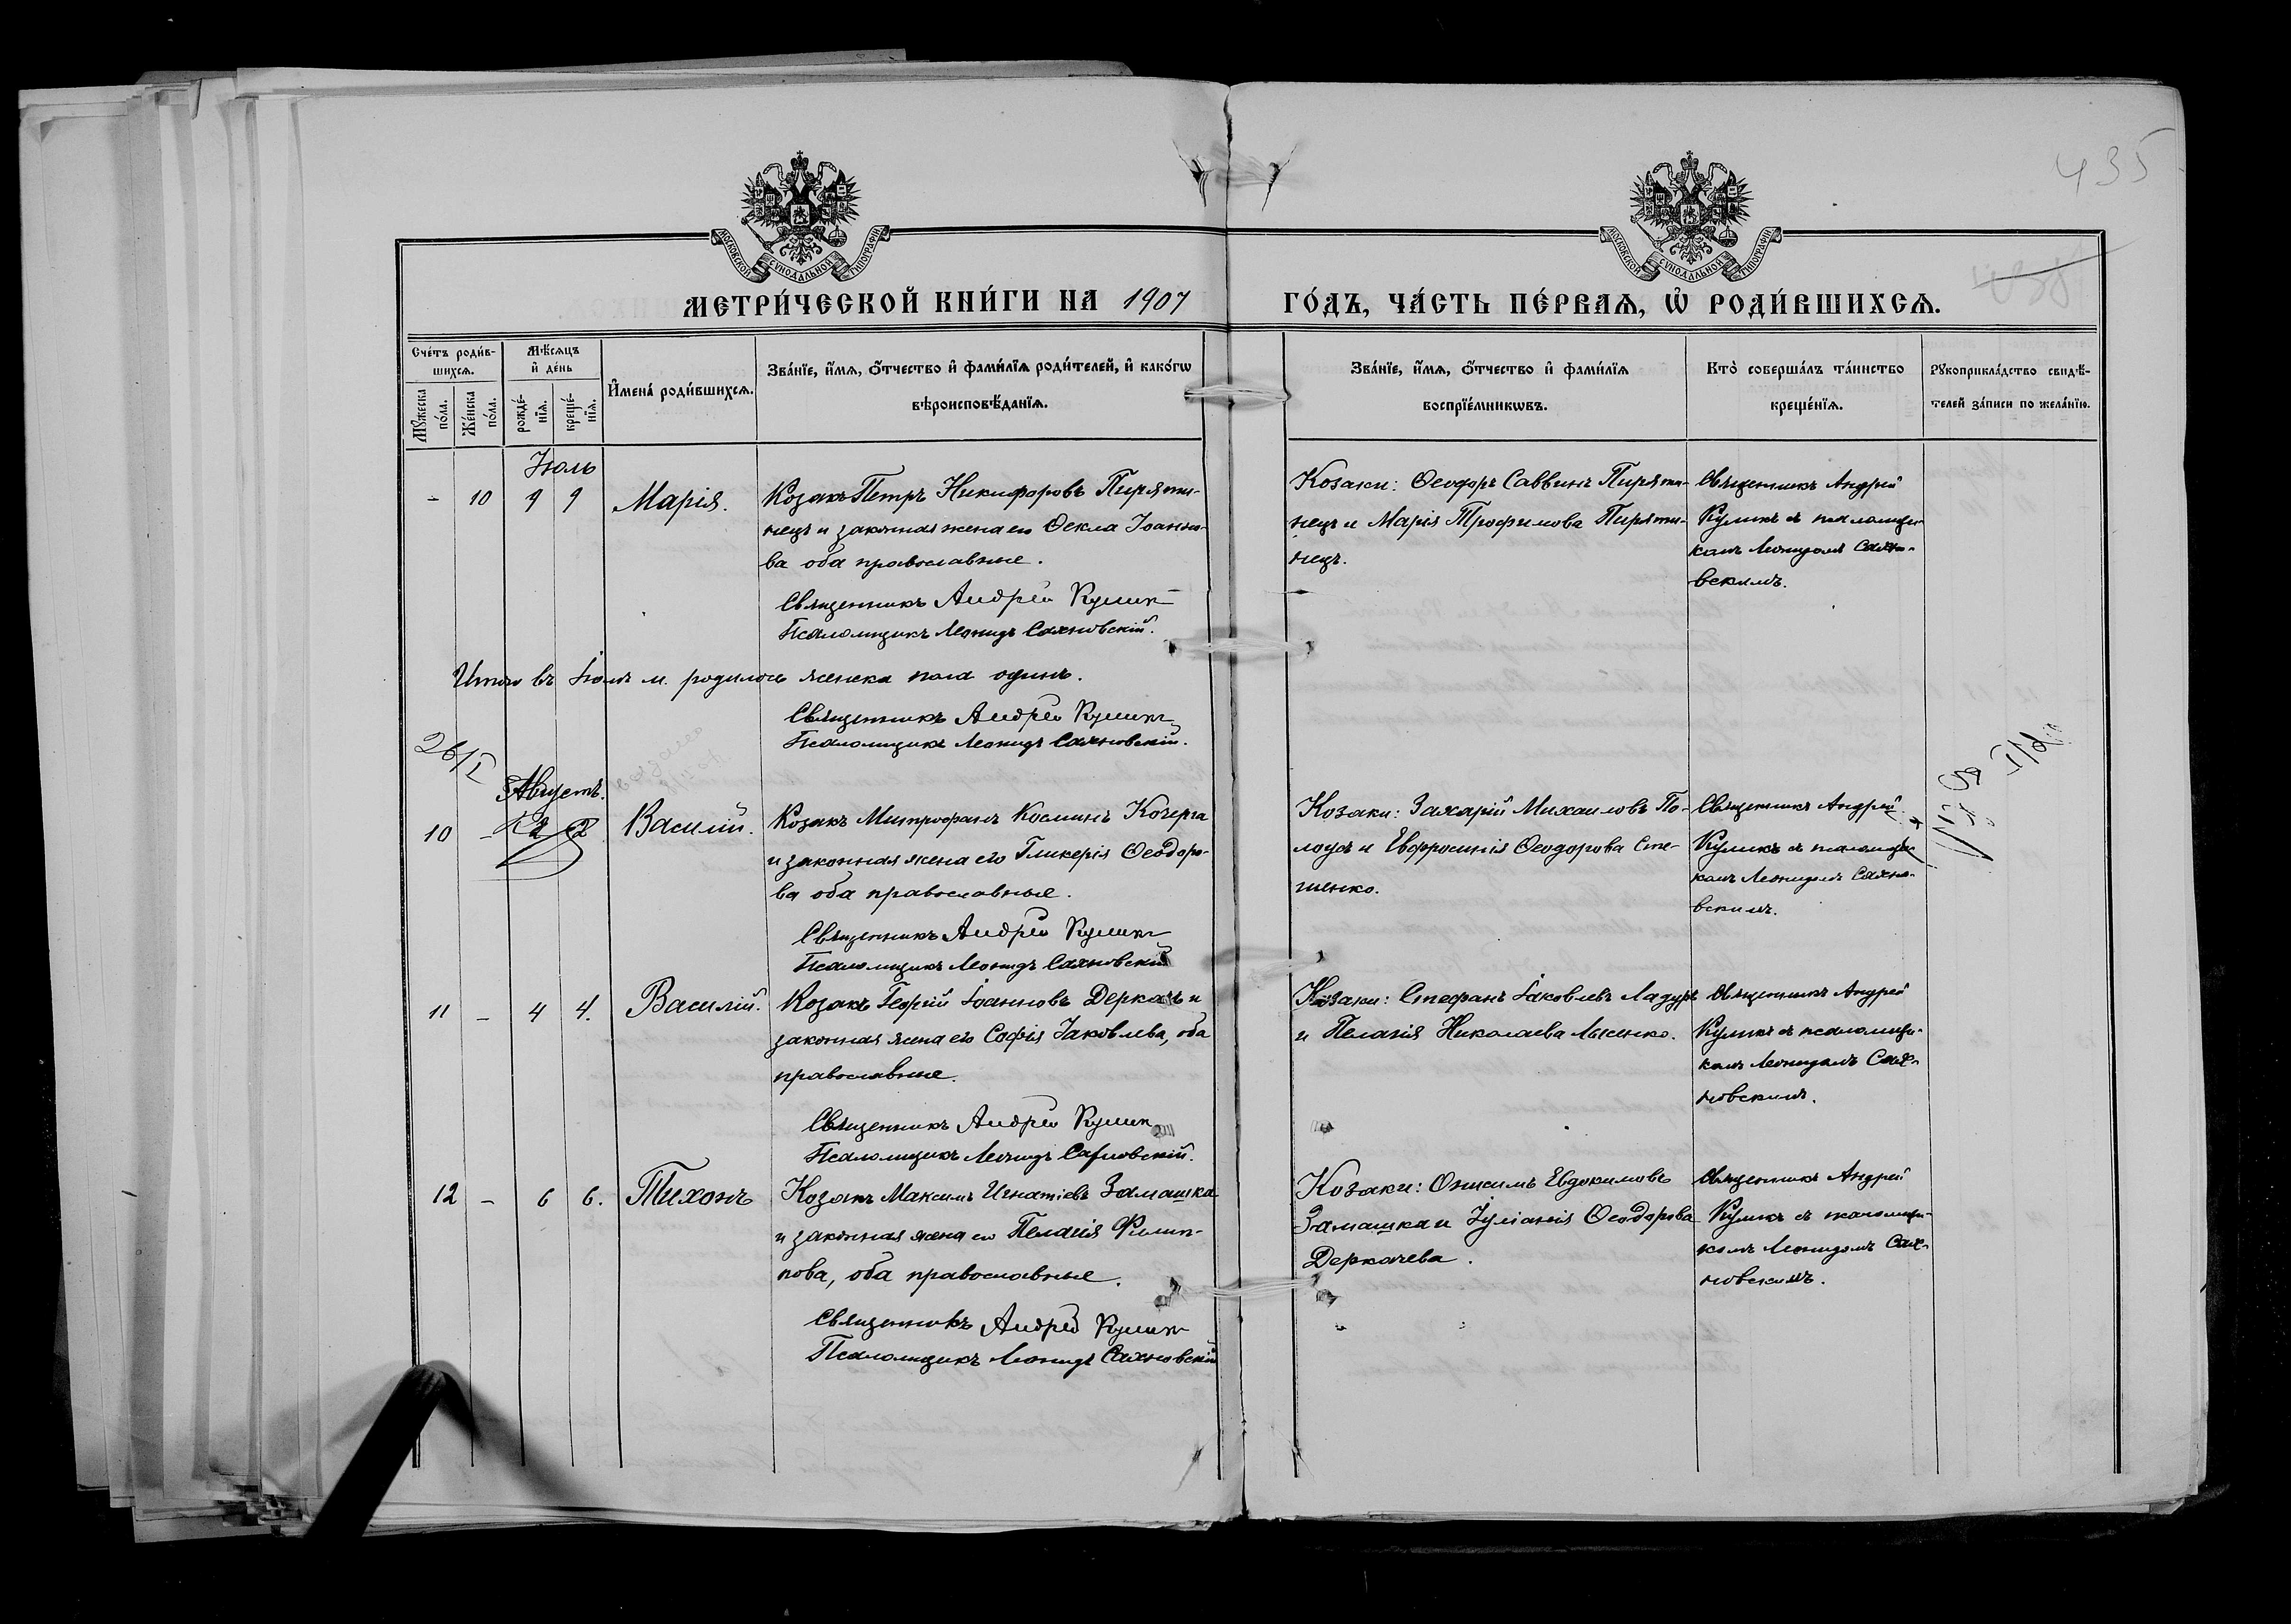 435
МОСКОВСКОЙ СУНОДАЛЬНОЙ ТИПОГРАФІИ
МОСКОВСКОЙ СУНОДАЛЬНОЙ ТИПОГРАФІИ
МЕТРИ́ЧЕСКОЙ КНИ́ГИ НА 1907
ГО́ДЪ, ЧА́СТЬ ПЕ́РВАѦ, Ѡ҆ РОДИ́ВШИХСѦ.
Сче́тъ роди́в-
шихсѧ.
Мѣ́сѧцъ
и҆ де́нь
Мꙋ́жеска
по́ла.
Же́нска
по́ла.
рожде́-
нїѧ.
креще́-
нїѧ.
И҆мена̀ роди́вшихсѧ.
Зва́нїе, и҆́мѧ, ѻ҆́тчество и҆ фамі́лїѧ роди́телей, и҆ како́гѡ
вѣроисповѣ́данїѧ.
Зва́нїе, и҆́мѧ, ѻ҆́тчество и҆ фамі́лїѧ
воспрїе́мникѡвъ.
Кто̀ соверша́лъ та́инство
креще́нїѧ.
Рꙋкоприкла́дство свидѣ́-
телей за́писи по жела́нїю.
Іюль
- 10 9 9 Марія.
Козакъ Петръ Никифоровъ Пиряти-
нецъ и законная жена его Ѳекла Іоанно-
ва оба православные.
Священникъ Андрей Кулик
Псаломщикъ Леонидъ Сахновскій.
Козаки: Ѳеодоръ Саввинъ Пиряти-
нецъ и Марія Трофимова Пиряти-
нецъ.
Священникъ Андрей
Куликъ съ псаломщи-
комъ Леонидомъ Сахно-
вскимъ.
Итого въ Іюлѣ м. родилось женска пола одинъ.
Священникъ Андрей Куликъ
Псаломщикъ Леонидъ Сахновскій.
26/I
Августъ.
10 - 2 2 Василій.
Козакъ Митрофанъ Косминъ Кочерга
и законная жена его Гликерія Ѳеодоро-
ва оба православные.
Священникъ Андрей Куликъ
Псаломщикъ Леонидъ Сахновскій
Козаки: Захарій Михаиловъ По-
лоусъ и Евфросинія Ѳеодорова Сте-
шенко.
Священникъ Андрей
Куликъ съ псаломщи-
комъ Леонидомъ Сахно-
вскимъ.
11 - 4 4. Василій.
Козакъ Георгій Іоанновъ Деркачъ и
законная жена его Софія Іаковлева, оба
православные.
Священникъ Андрей Кулик
Псаломщикъ Леонидъ Сахновскій.
Козаки: Стефанъ Іаковлевъ Ладуръ
и Пелагія Николаева Лысенко.
Священникъ Андрей
Куликъ съ псаломщи-
комъ Леонидомъ Сах-
новскимъ.
12 - 6 6. Тихонъ
Козакъ Максимъ Игнатіевъ Замашка
и законная жена его Пелагія Филип-
пова, оба православные.
Священникъ Андрей Кулик
Псаломщикъ Леонидъ Сахновскій
Козаки: Онисимъ Евдокимовъ
Замашка и Іуліанія Ѳеодорова
Деркачева.
Священникъ Андрей
Куликъ съ псаломщи-
комъ Леонидомъ Сах-
новскимъ.